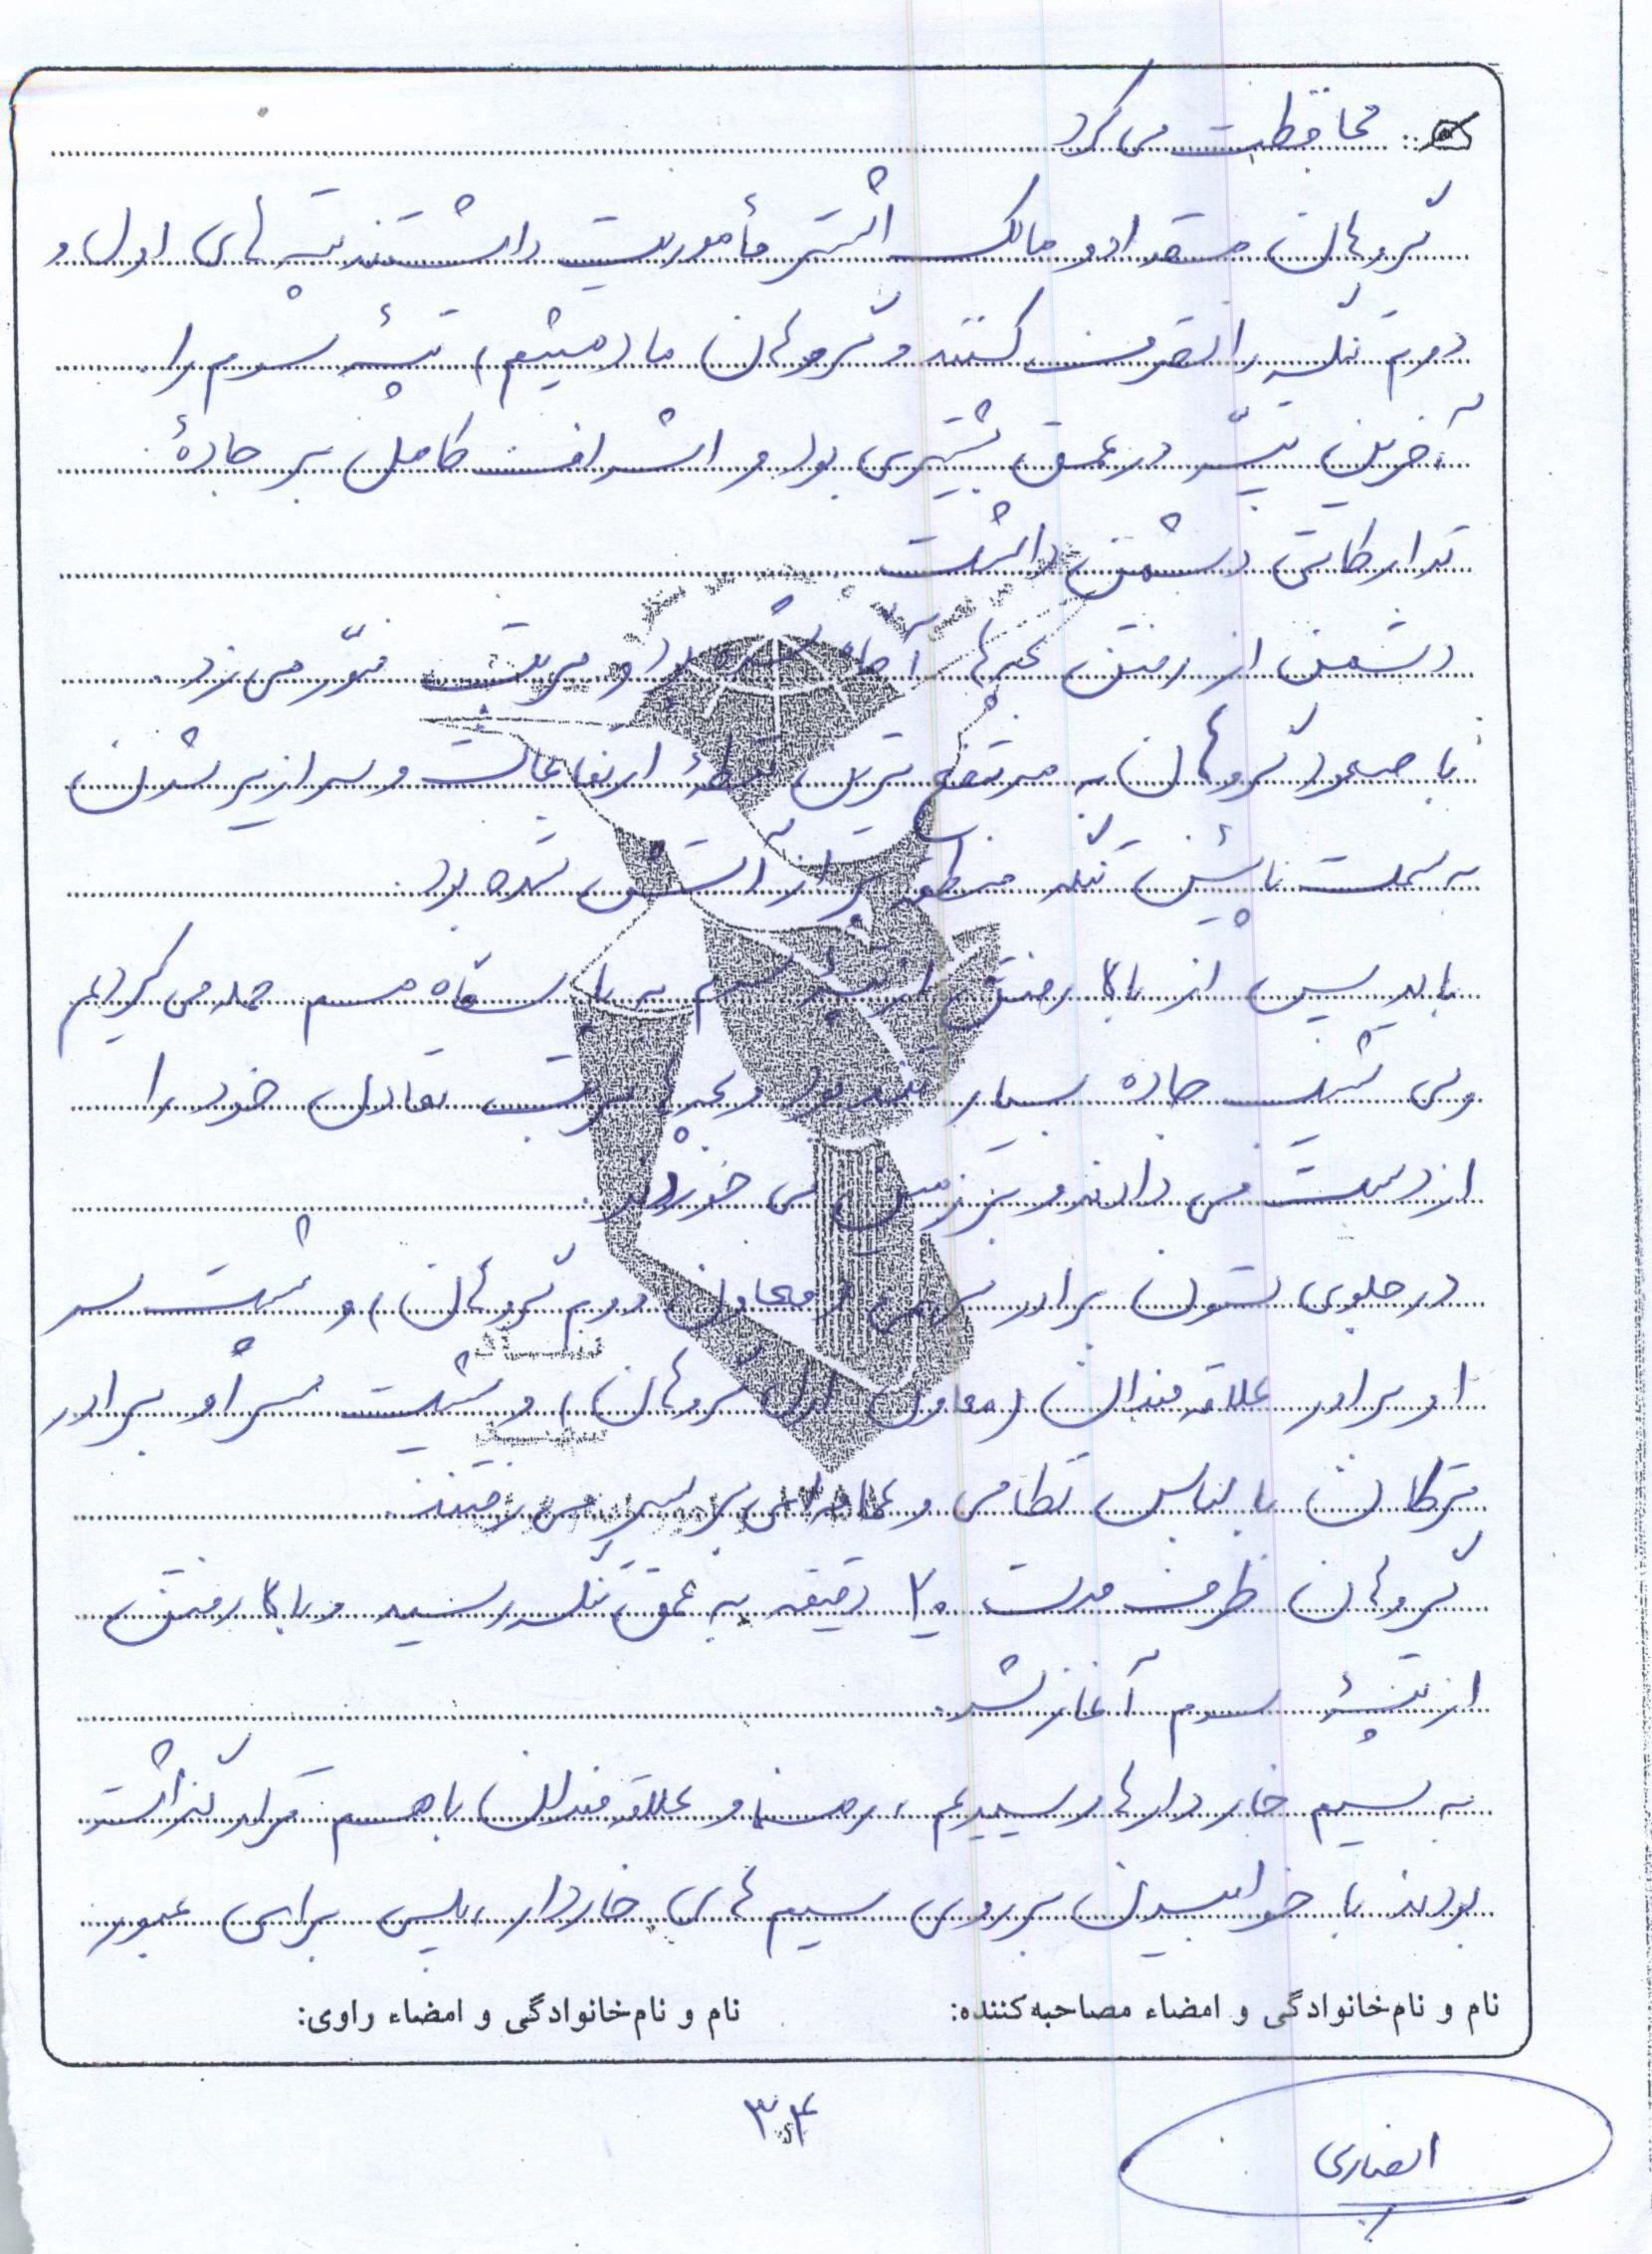 محافظت می کرد
گروهان مقداد و مالک اشتر مأموریت داشتند تپه های اول و
دوم تنگه را تصرف کنند و گروهان ما (میثم) تپهٔ سوم را.
آخرین تپه در عمق بیشتری بود و اشراف کامل بر جادهٔ
تدارکاتی دشمن داشت
دشمن از رفتن بچه ها آگاه شده بود و مرتب منوّر می زد.
با صعود گروهان به مرتفع ترین نقطهٔ ارتفاعات و سرازیر شدن
به سمت پائین تنگه منطقه پر از آتش شده بود.
باید پس از بالا رفتن از تپهٔ سوم به پاسگاه سوم حمله می کردیم
ولی شیب جاده بسیار تند بود و بچه ها مرتب تعادل خود را
از دست می دادند و بر زمین می خوردند.
در جلوی ستون برادر (معاون دوم گروهان) و پشت سر
او برادر علاقمندان (معاون اول گروهان) و پشت سر او برادر
ترکان با لباس نظامی و عمامه ای بر سر می رفتند.
گروهان ظرف مدت ۲۰ دقیقه به عمق تنگه رسید و بالا رفتن
از تپهٔ سوم آغاز شد.
به سیم خاردارها رسیدیم، رضا و علاقمندان با هم قرار گذاشته
بودند با خوابیدن بر روی سیم های خاردار، پلی برای عبور
نام و نام‌خانوادگی و امضاء مصاحبه‌کننده: نام و نام‌خانوادگی و امضاء راوی:
۳۴
انصاری